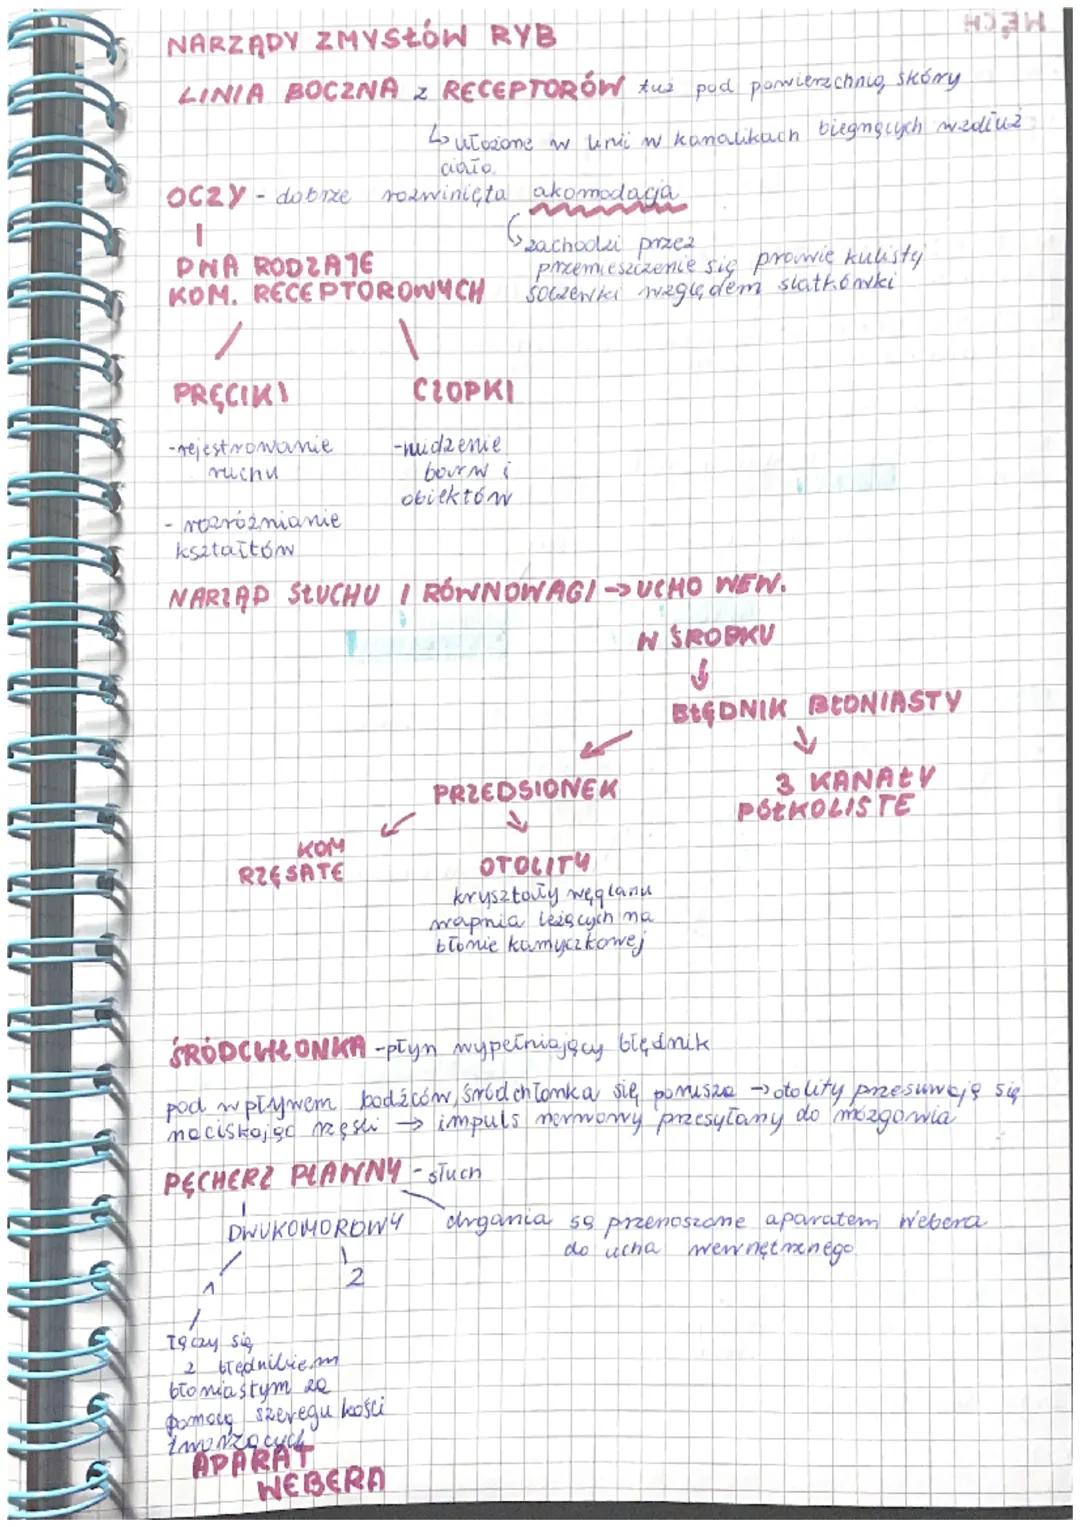 NARZĄDY ZMYSŁÓW RYB
LINIA BOCZNA z RECEPTORÓW tuż pod powierzchnią skóry
↳ ułożone w linii w kanalikach biegnących wzdłuż
ciała
OCZY - dobrze rozwinięta akomodacja
↳ zachodzi przez
przemieszczenie się prawie kulistej
soczewki względem siatkówki
DWA RODZAJE
KOM. RECEPTOROWYCH
PRĘCIKI CZOPKI
- rejestrowanie
ruchu
- rozróżnianie
kształtów
- widzenie
barw i
obiektów
NARZĄD SŁUCHU I RÓWNOWAGI → UCHO WEW.
W ŚRODKU
↓
BŁĘDNIK BŁONIASTY
PRZEDSIONEK
3 KANAŁY
PÓŁKOLISTE
KOM
RZĘSATE
OTOLITY
kryształy węglanu
wapnia leżących na
błonie kamyczkowej
ŚRÓDCHŁONKA - płyn wypełniający błędnik
pod wpływem bodźców śródchłonka się porusza → otolity przesuwają się
naciskając rzęski → impuls nerwowy przesyłany do mózgowia
PĘCHERZ PŁAWNY - słuch
DWUKOMOROWY
drgania są przenoszone aparatem Webera
do ucha wewnętrznego
1 2
łączy się
z błędnikiem
błoniastym za
pomocą szeregu kości
tworzących
APARAT
WEBERA